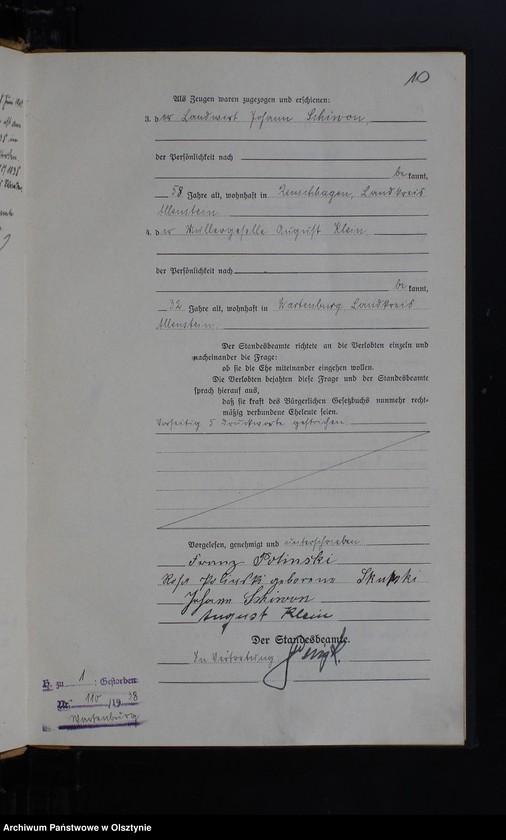 10
Als Zeugen waren zugezogen und erschienen:
3. der Landwirt Johann Schiwon
der Persönlichkeit nach
be kannt,
58 Jahre alt, wohnhaft in Reuschhagen, Landkreis
Allenstein
4. der Müllergeselle August Klein
der Persönlichkeit nach
be kannt,
32 Jahre alt, wohnhaft in Wartenburg Landkreis
Allenstein
Der Standesbeamte richtete an die Verlobten einzeln und
nacheinander die Frage:
ob sie die Ehe miteinander eingehen wollen.
Die Verlobten bejahten diese Frage und der Standesbeamte
sprach hierauf aus,
daß sie kraft des Bürgerlichen Gesetzbuchs nunmehr recht-
mäßig verbundene Eheleute seien.
Vorseitig 5 Druckworte gestrichen
Vorgelesen, genehmigt und unterschrieben
Franz Polinski
Rosa Polinski geborene Skupski
Johann Schiwon
August Klein
Der Standesbeamte.
In Vertretung
H. zu 1 : Gestorben
Nr. 110 /19 38
Wartenburg
Archiwum Państwowe w Olsztynie